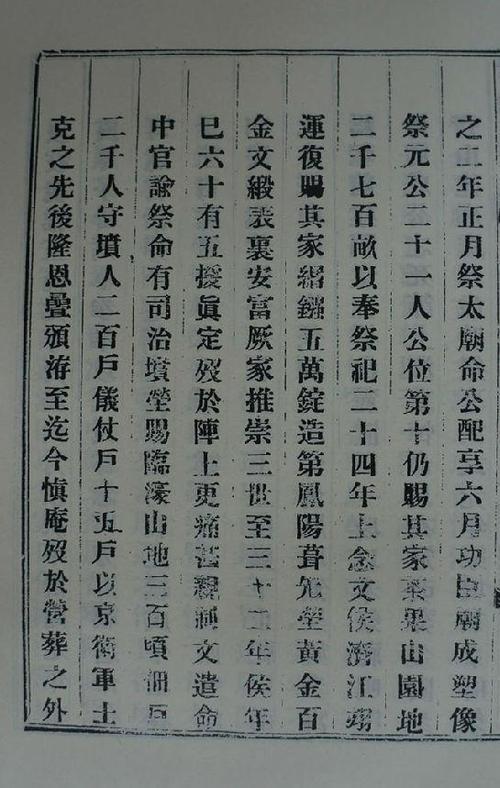 之二年正月祭太廟命公配享六月功臣廟成塑像
祭元公二十一人公位第十仍賜其家菜果山園地
二千七百畝以奉祭祀二十四年上念文侯濟江翊
運復賜其家楮鏹五萬錠造第鳳陽葺先塋黃金百
金文緞表裏安富厥家推崇三世至三十二年侯年
巳六十有五援眞定歿於陣上更痛甚親禋文遣命
中官諭祭命有司治墳塋賜臨濠山地三百頃佃戸
二千人守墳人二百戸儀仗戸十五戸以京衛軍士
克之先後隆恩疊頒洊至迄今慎庵歿於營葬之外